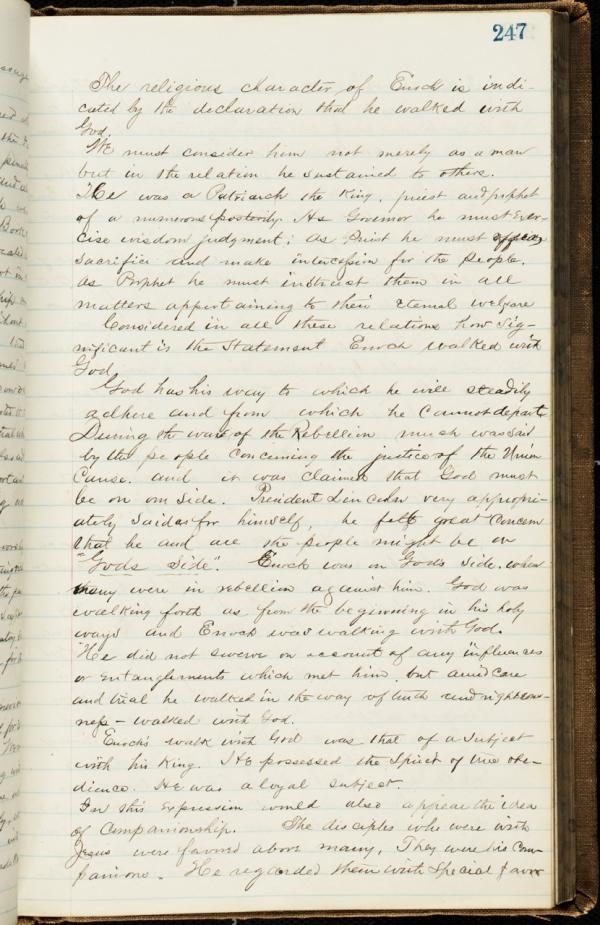 247
The religious character of Enoch is indi-
cated by the declaration that he walked with
God.
We must consider him not merely as a man
but in the relation he sustained to others.
He was a Patriarch the King, priest and prophet
of a numerous posterity. As Governor he must exer-
cise wisdom judgment; as Priest he must offer
sacrifice and make intercession for the people.
as Prophet he must instruct them in all
matters appertaining to their eternal welfare
Considered in all these relations how sig-
nificant is the statement Enoch walked with
God.
God has his way to which he will steadily
adhere and from which he cannot depart.
During the war of the Rebellion much was said
by the people concerning the justice of the Union
Cause. and it was claimed that God must
be on our side. President Lincoln very appropri-
ately said as for himself, he felt great concern
that he and all the people might be on
"Gods side". Enoch was on Gods side. when
many were in rebellion against him. God was
walking forth as from the beginning in his holy
ways and Enoch was walking with God.
He did not swerve on account of any influences
or entanglements which met him, but amid care
and trial he walked in the way of truth and righteous-
ness - walked with God.
Enoch's walk with God was that of a subject
with his King. He possessed the spirit of true obe-
dience. He was a loyal subject.
In this expression would also appear the idea
of Companionship. The disciples who were with
Jesus were favored above many. They were his Com-
panions. He regarded them with special favor